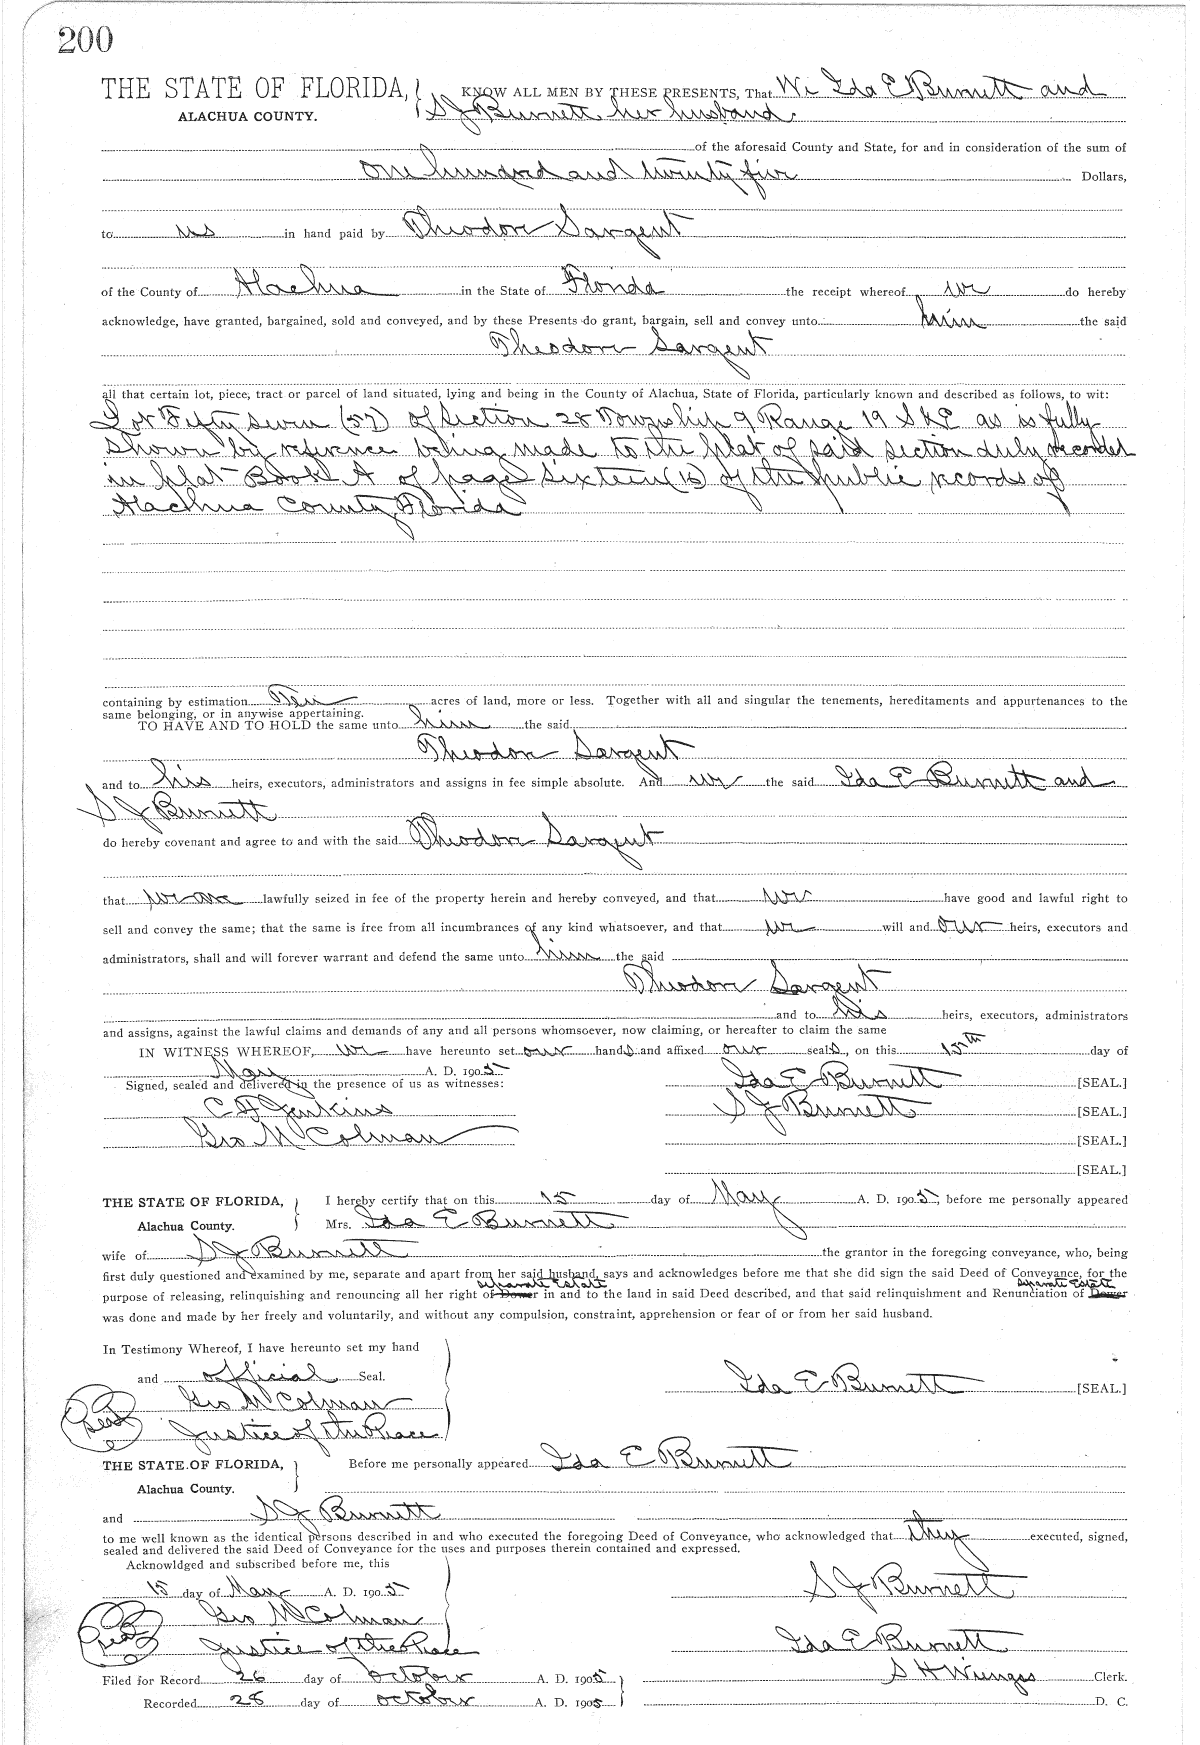 200
THE STATE OF FLORIDA, KNOW ALL MEN BY THESE PRESENTS, That We Ida E Burnett and
ALACHUA COUNTY. S J Burnett her husband.
of the aforesaid County and State, for and in consideration of the sum of
one hundred and twenty five Dollars,
to us in hand paid by Theodore Sargent
of the County of Alachua in the State of Florida the receipt whereof we do hereby
acknowledge, have granted, bargained, sold and conveyed, and by these Presents do grant, bargain, sell and convey unto him the said
Theodore Sargent
all that certain lot, piece, tract or parcel of land situated, lying and being in the County of Alachua, State of Florida, particularly known and described as follows, to wit:
Lot Fifty seven (57) of Section 28 Township 9 Range 19 S & E as is fully
shown by reference being made to the plat of said section duly recorded
in plat Book A of page Sixteen (16) of the public records of
Alachua County, Florida
containing by estimation Ten acres of land, more or less. Together with all and singular the tenements, hereditaments and appurtenances to the
same belonging, or in anywise appertaining.
TO HAVE AND TO HOLD the same unto him the said
Theodore Sargent
and to his heirs, executors, administrators and assigns in fee simple absolute. And we the said Ida E Burnett and
S J Burnett
do hereby covenant and agree to and with the said Theodore Sargent
that we are lawfully seized in fee of the property herein and hereby conveyed, and that we have good and lawful right to
sell and convey the same; that the same is free from all incumbrances of any kind whatsoever, and that we will and our heirs, executors and
administrators, shall and will forever warrant and defend the same unto him the said
Theodore Sargent
and to his heirs, executors, administrators
and assigns, against the lawful claims and demands of any and all persons whomsoever, now claiming, or hereafter to claim the same
IN WITNESS WHEREOF, we have hereunto set our hands and affixed our seals, on this 15th day of
May A. D. 1905
Signed, sealed and delivered in the presence of us as witnesses: Ida E Burnett [SEAL.]
C F Jenkins S J Burnett [SEAL.]
Geo McColman [SEAL.]
[SEAL.]
THE STATE OF FLORIDA, I hereby certify that on this 15 day of May A. D. 1905, before me personally appeared
Alachua County. Mrs. Ida E Burnett
wife of S J Burnett the grantor in the foregoing conveyance, who, being
first duly questioned and examined by me, separate and apart from her said husband, says and acknowledges before me that she did sign the said Deed of Conveyance, for the
separate Estate separate Estate
purpose of releasing, relinquishing and renouncing all her right of Dower in and to the land in said Deed described, and that said relinquishment and Renunciation of Dower
was done and made by her freely and voluntarily, and without any compulsion, constraint, apprehension or fear of or from her said husband.
In Testimony Whereof, I have hereunto set my hand
and official Seal. Ida E Burnett [SEAL.]
Geo McColman
Seal Justice of the Peace
THE STATE OF FLORIDA, Before me personally appeared Ida E Burnett
Alachua County.
and S J Burnett
to me well known as the identical persons described in and who executed the foregoing Deed of Conveyance, who acknowledged that they executed, signed,
sealed and delivered the said Deed of Conveyance for the uses and purposes therein contained and expressed.
Acknowldged and subscribed before me, this
15 day of May A. D. 1905 S J Burnett
Geo McColman
Seal Justice of the Peace Ida E Burnett
Filed for Record 26 day of October A. D. 1905 S H Wienges Clerk.
Recorded 28 day of October A. D. 1905 D. C.